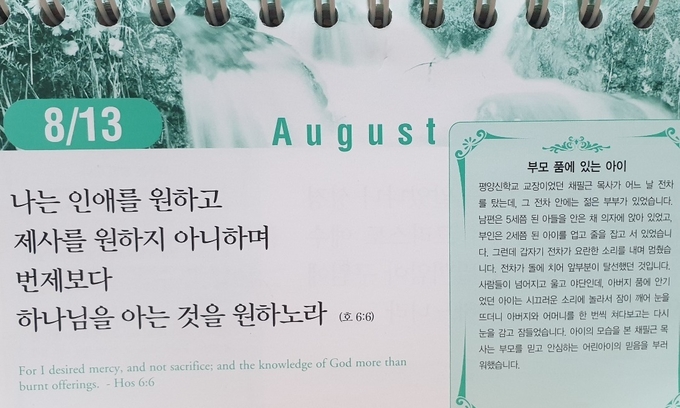 8/13
August
나는 인애를 원하고
제사를 원하지 아니하며
번제보다
하나님을 아는 것을 원하노라 (호 6:6)
For I desired mercy, and not sacrifice; and the knowledge of God more than
burnt offerings. - Hos 6:6
부모 품에 있는 아이
평양신학교 교장이었던 채필근 목사가 어느 날 전차
를 탔는데, 그 전차 안에는 젊은 부부가 있었습니다.
남편은 5세쯤 된 아들을 안은 채 의자에 앉아 있었고,
부인은 2세쯤 된 아이를 업고 줄을 잡고 서 있었습니
다. 그런데 갑자기 전차가 요란한 소리를 내며 멈췄습
니다. 전차가 돌에 치어 앞부분이 탈선했던 것입니다.
사람들이 넘어지고 울고 야단인데, 아버지 품에 안기
었던 아이는 시끄러운 소리에 놀라서 잠이 깨어 눈을
뜨더니 아버지와 어머니를 한 번씩 쳐다보고는 다시
눈을 감고 잠들었습니다. 아이의 모습을 본 채필근 목
사는 부모를 믿고 안심하는 어린아이의 믿음을 부러
워했습니다.